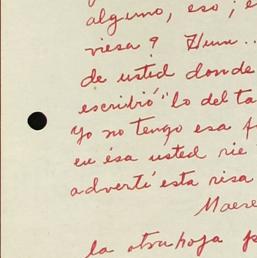 alguno, eso; e
viesa? Hum..
de usted donde
escribió "lo del ta
yo no tengo esa f
en ésa usted rie
advertí esta risa
Maese
la otra hoja p